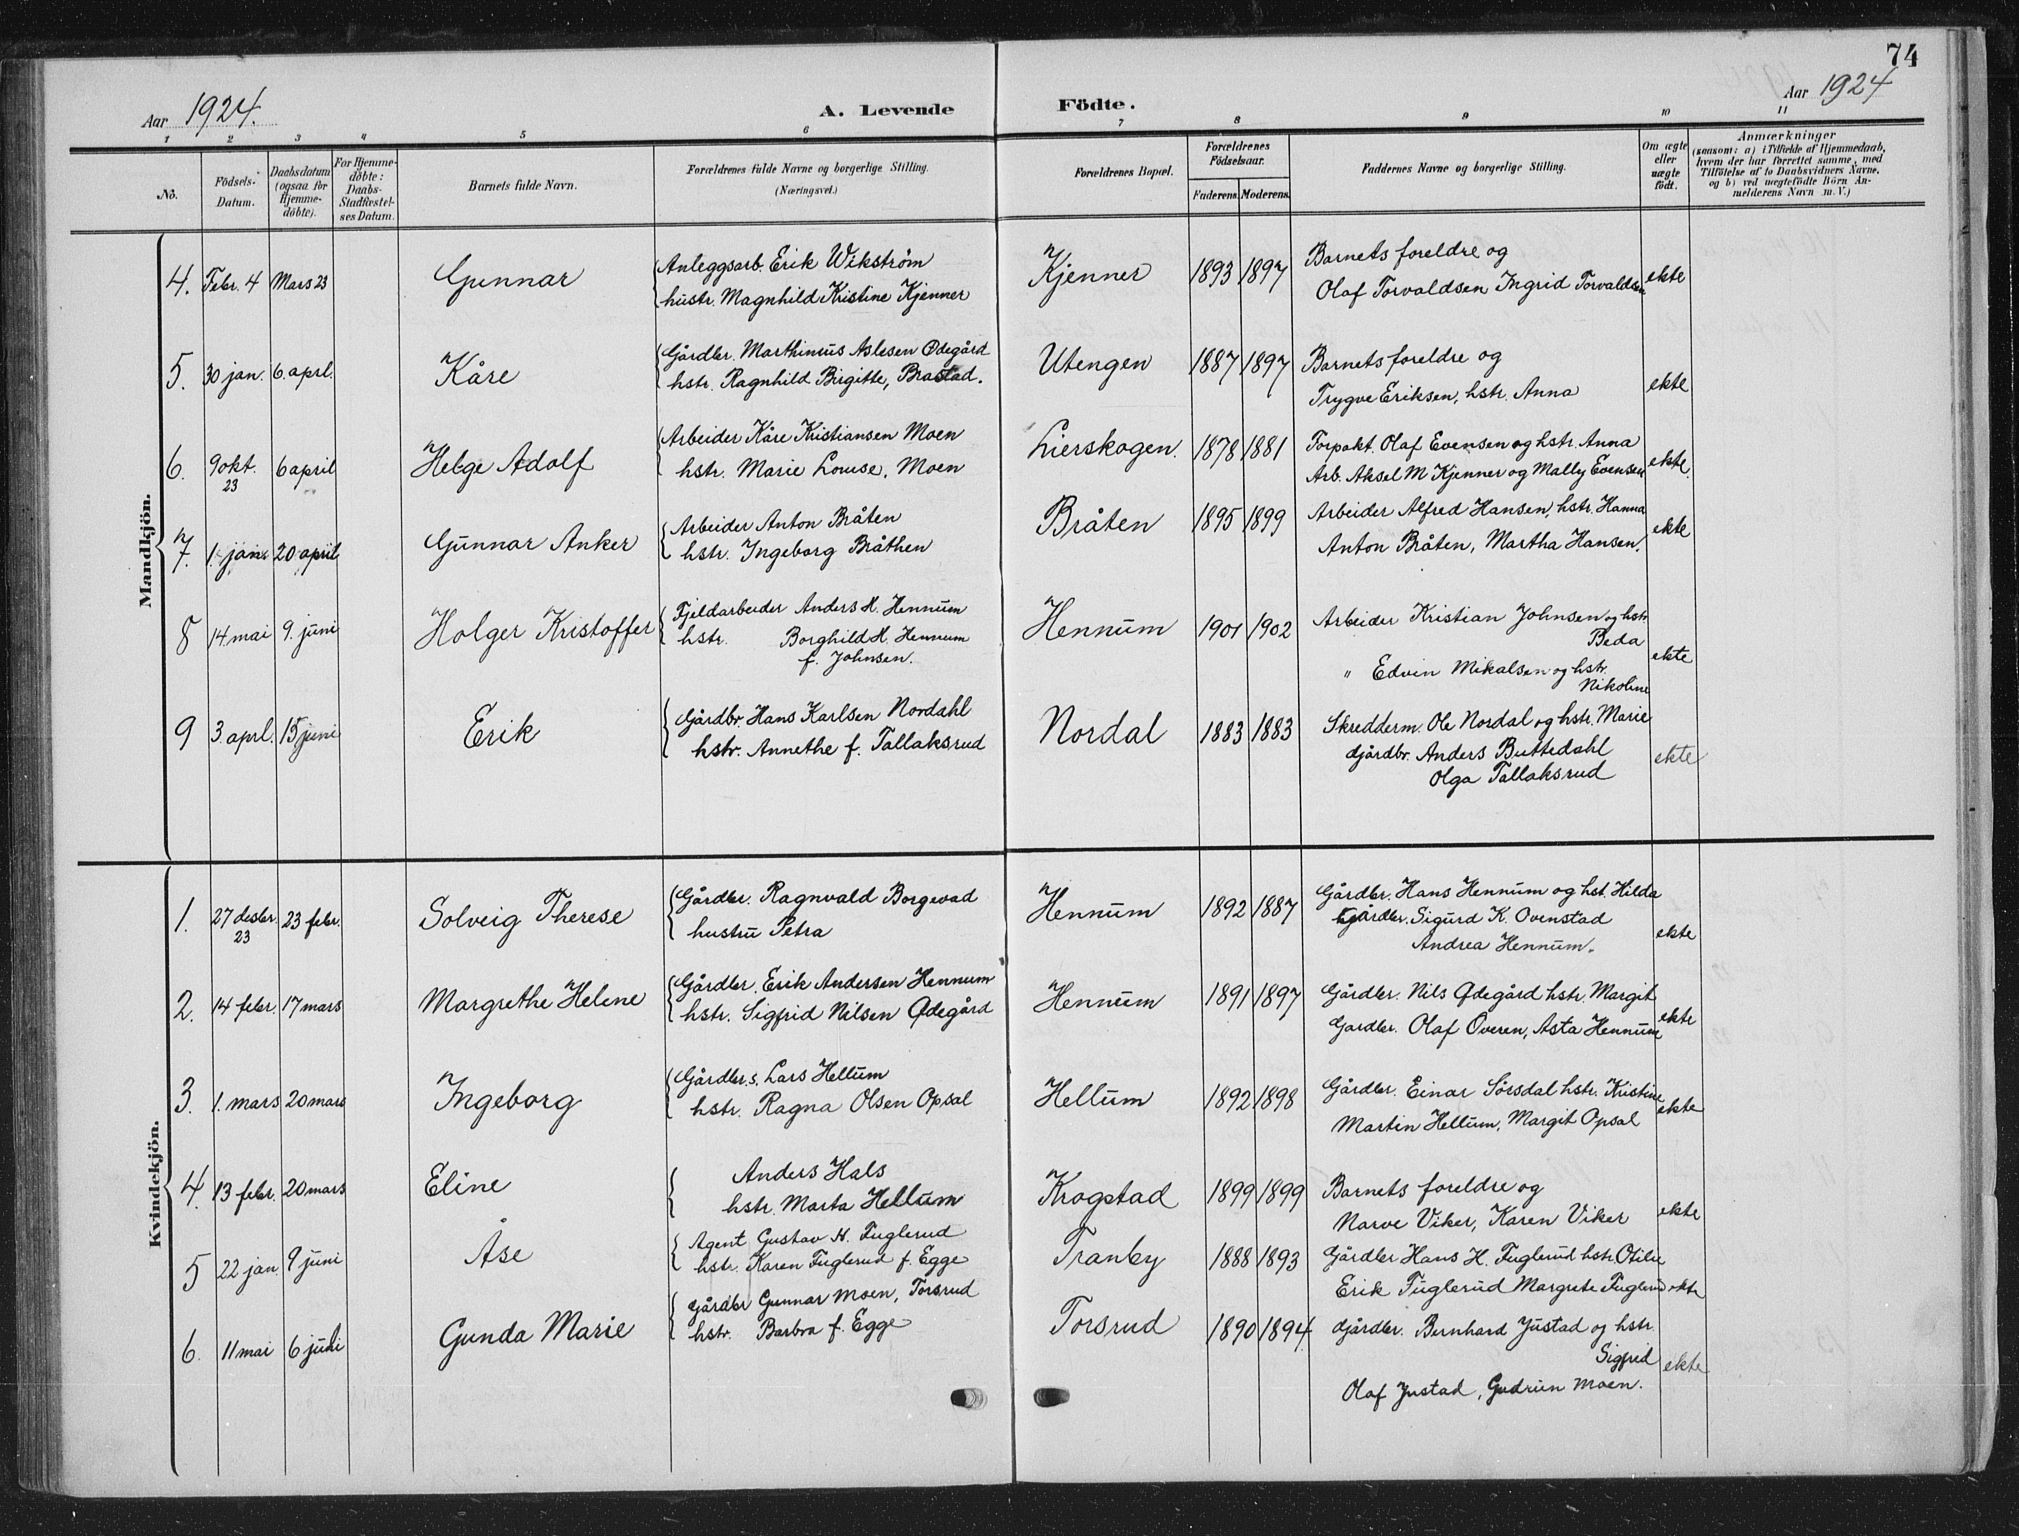 74
Aar 1924.
A. Levende Födte.
Aar 1924
1 2 3 4 5 6 7 8 9 10 11
No.
Födsels-Datum.
Daabsdatum (ogsaa for Hjemme-döbte).
For Hjemme-döbte: Daabs-Stadfæstel-ses Datum.
Barnets fulde Navn.
Forældrenes fulde Navne og borgerlige Stilling.
(Næringsvei.)
Forældrenes Bopæl.
Forældrenes Födselsaar.
Faderens. Moderens.
Faddernes Navne og borgerlige Stilling.
Om ægte eller uægte födt.
Anmærkninger
(saasom: a) i Tilfælde af Hjemmedaab,
hvem der har forrettet samme, med
Tilföielse af to Daabsvidners Navne,
og b) ved uægtefödte Börn An-
melderens Navn m. V.)
Mandkjön.
4. Febr. 4 Mars 23 Gunnar Anleggsarb. Erik Wikstrøm Kjenner 1893 1897 Barnets foreldre og ekte
hustr. Magnhild Kristine Kjenner Olaf Torvaldsen Ingrid Torvaldsen
5. 30 jan. 6. aprl. Kåre Gårdbr. Marthinius Aslesen Ødegård Utengen 1887 1897 Barnets foreldre og ekte
hstr. Ragnhild Birgitte, Brastad. Trygve Eriksen, hstr. Anna
6. 9 okt. 23 6 april Helge Adolf Arbeider Kåre Kristiansen Moen Lierskogen. 1878 1881 Forpakt. Olaf Evensen og hstr. Anna ekte.
hstr. Marie Louise, Moen Arb. Aksel M Kjenner og Mally Evensen
7. 1. jan. 20 april Gunnar Anker Arbeider Anton Bråten Bråten 1895 1899 Arbeider Alfred Hansen, hstr. Hanna ekte
hstr. Ingeborg Bråthen Anton Bråten, Martha Hansen.
8 14 mai 9. juni Holger Kristoffer Fjeldarbeider Anders H. Hennum Hennum 1901 1902 Arbeider Kristian Johnsen og hstr. Beda ekte
hstr. Borghild H. Hennum
f. Johnsen. " Edvin Mikalsen og hstr. Nikoline
9 3. aprl. 15 juni Erik Gårdbr. Hans Karlsen Nordahl Nordal 1883 1883 Skredderm. Ole Nordal og hstr. Marie ekte
hstr. Annethe f. Tallaksrud gårdbr. Anders Buttedahl
Olga Tallaksrud
Kvindekjön.
1. 27 desbr. 23 23 febr. Solveig Therese Gårdbr. Ragnvald Borgevad Hennum 1892 1887 Gårdbr. Hans Hennum og hst. Hilda ekte
hustru Petra Gårdbr. Sigurd K. Ovenstad
Andrea Hennum.
2. 14 febr. 17 mars Margrethe Helene Gårdbr. Erik Andersen Hennum Hennum 1891 1897 Gårdbr. Nils Ødegård hstr. Margit ekte
hstr. Sigfrid Nilsen Ødegård Gardbr. Olaf Overen, Asta Hennum
3. 1. mars 20 mars Ingeborg Gårdbr.s. Lars Hellum Hellum 1892 1898 Gårdbr. Einar Sørsdal hstr. Kristine ekte
hstr. Ragna Olsen Opsal Martin Hellum, Margit Opsal
4. 13 febr. 20 mars Eline Anders Hals Krogstad 1899 1899 Barnets foreldre og ekte
hstr. Marta Hellum Narve Viker, Karen Viker
5 22 jan. 9 juni Åse Agent Gustav H. Fuglerud Tranby 1888 1893 Gårdbr Hans H. Fuglerud hstr. Otilie ekte
hstr. Karen Fuglerud f. Egge Erik Fuglerud Margrete Fuglerud
6. 11 mai 6 juli Gunda Marie Gårdbr Gunnar Moen, Torsrud Torsrud 1890 1894. gårdbr. Bernhard Justad og hstr. Sigfrid ekte
hstr. Barbra f. Egge Olaf Justad, Gudrun Moen.